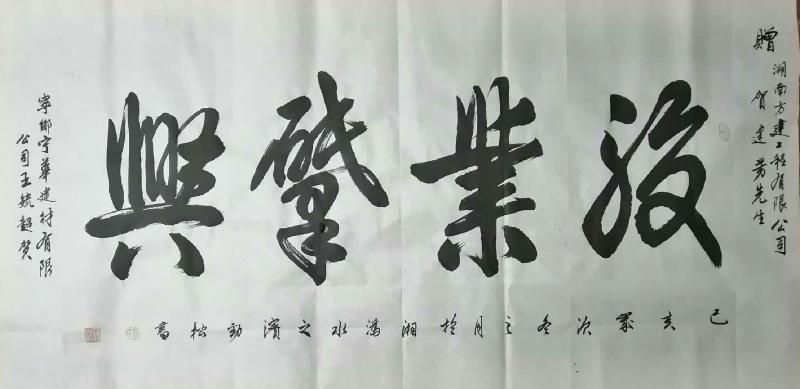 贈湖南方建工程有限公司
賀建芳先生
駿業肇興
寧鄉宇華建材有限
公司王毓超賀
己亥歲次冬之月於湘溈水之濱勁松書